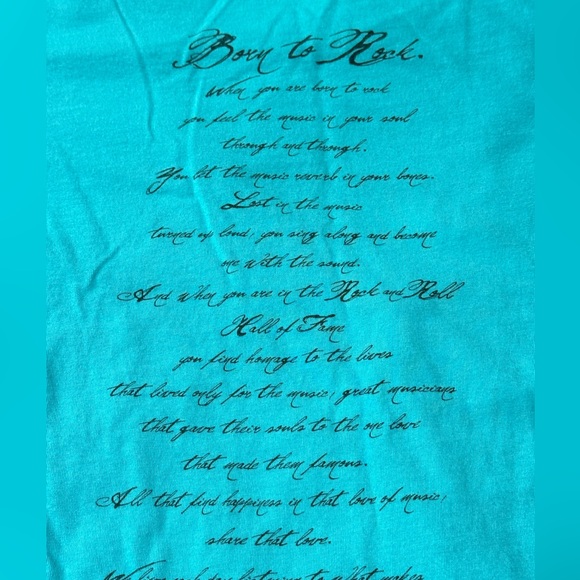 Born to Rock.
When you are born to rock
you feel the music in your soul
through and through.
You let the music reverb in your bones.
Lost in the music
turned up loud, you sing along and become
one with the sound.
And when you are in the Rock and Roll
Hall of Fame
you find homage to the lives
that lived only for the music, great musicians
that gave their souls to the one love
that made them famous.
All that find happiness in that love of music,
share that love.
We live each day listening to what makes